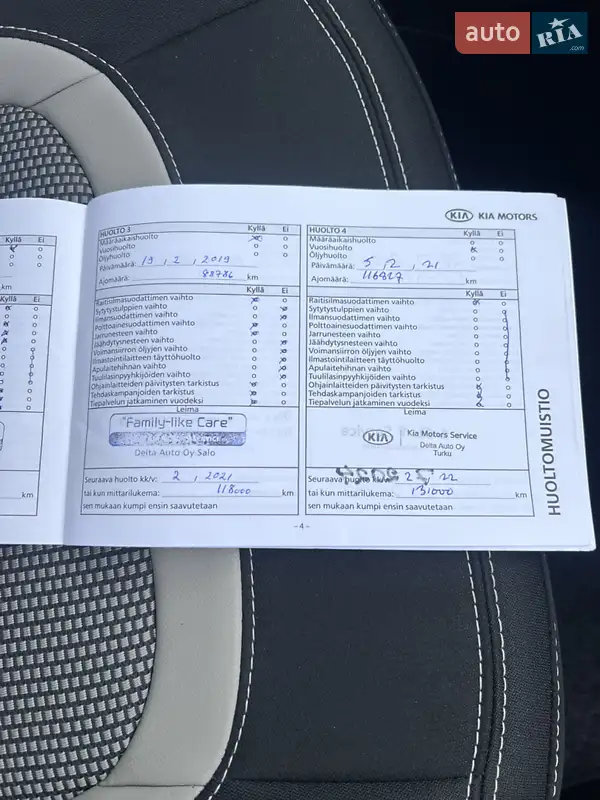 auto RIA .com
KIA KIA MOTORS
Kyllä Ei
km
Kyllä Ei
km
HUOLTO 3 Kyllä Ei
Määräaikaishuolto
Vuosihuolto
Öljyhuolto
Päivämäärä: 19, 2, 2019
Ajomäärä: 88786 km
Kyllä Ei
Raitisilmasuodattimen vaihto
Sytytystulppien vaihto
Ilmansuodattimen vaihto
Polttoainesuodattimen vaihto
Jarrunesteen vaihto
Jäähdytysnesteen vaihto
Voimansiirron öljyjen vaihto
Ilmastointilaitteen täyttöhuolto
Apulaitehihnan vaihto
Tuulilasinpyyhkijöiden vaihto
Ohjainlaitteiden päivitysten tarkistus
Tehdaskampanjoiden tarkistus
Tiepalvelun jatkaminen vuodeksi
Leima
"Family-like Care"
Delta Auto Oy Salo
Seuraava huolto kk/v: 2, 2021
tai kun mittarilukema: 118000 km
sen mukaan kumpi ensin saavutetaan
HUOLTO 4 Kyllä Ei
Määräaikaishuolto
Vuosihuolto
Öljyhuolto
Päivämäärä: 5, 2, 21
Ajomäärä: 116827 km
Kyllä Ei
Raitisilmasuodattimen vaihto
Sytytystulppien vaihto
Ilmansuodattimen vaihto
Polttoainesuodattimen vaihto
Jarrunesteen vaihto
Jäähdytysnesteen vaihto
Voimansiirron öljyjen vaihto
Ilmastointilaitteen täyttöhuolto
Apulaitehihnan vaihto
Tuulilasinpyyhkijöiden vaihto
Ohjainlaitteiden päivitysten tarkistus
Tehdaskampanjoiden tarkistus
Tiepalvelun jatkaminen vuodeksi
Leima
KIA Kia Motors Service
Delta Auto Oy
Turku
Seuraava huolto kk/v: 2, 22
tai kun mittarilukema: 131000 km
sen mukaan kumpi ensin saavutetaan
-4-
HUOLTOMUISTIO